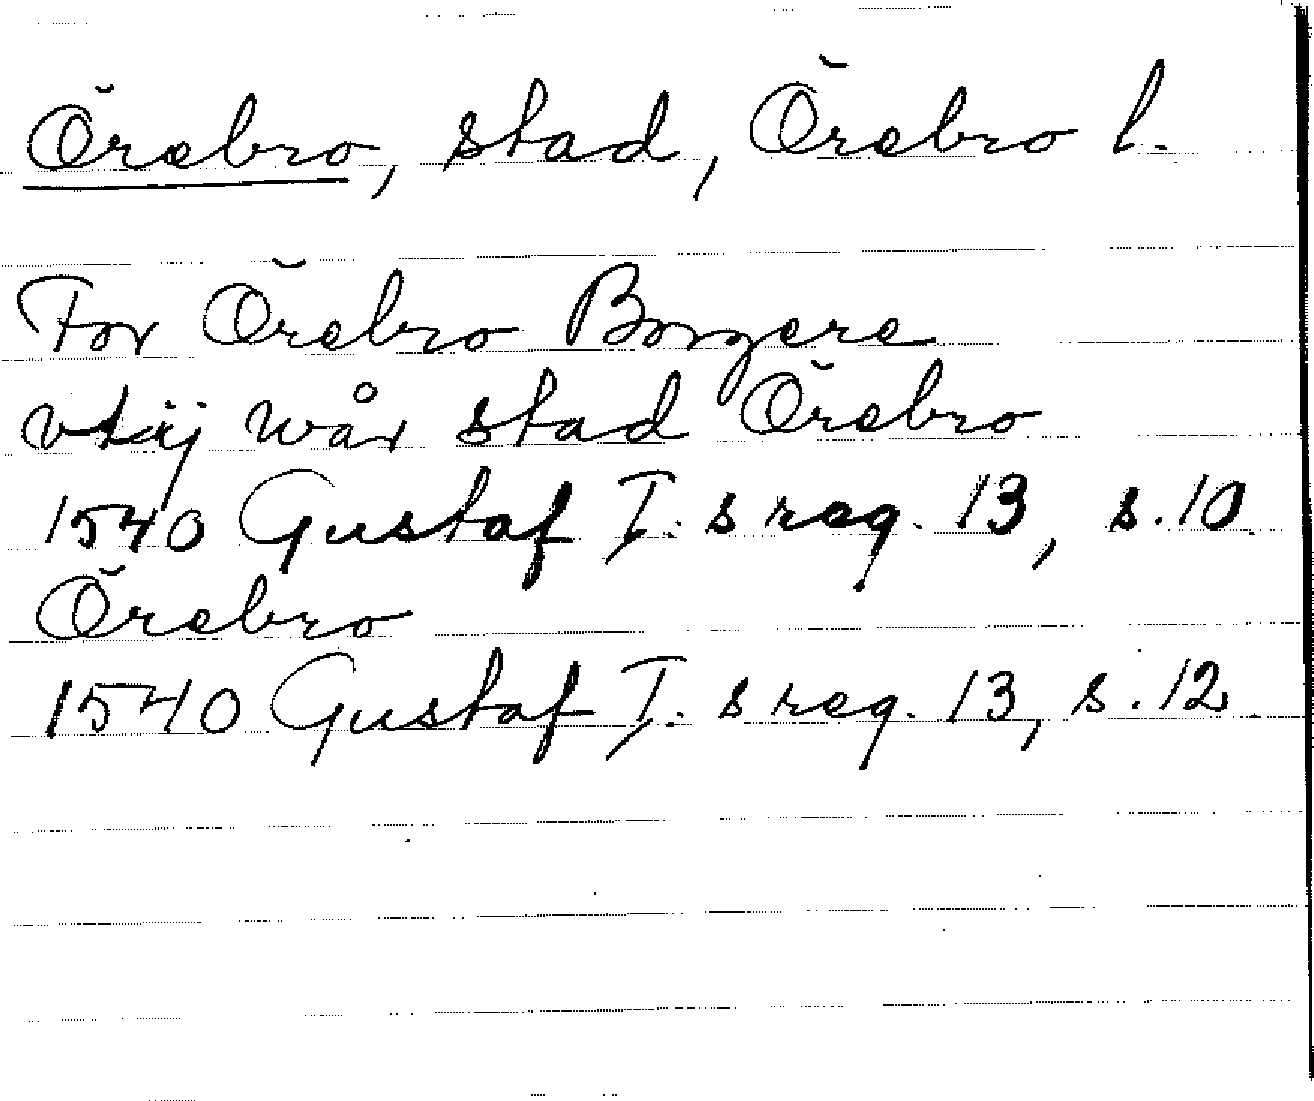 Örebro, stad, Örebro l.
For Örebro Borgere
vtäij wår stad Örebro
1540 Gustaf I:s reg. 13, s.10
Örebro
1540 Gustaf I:s reg. 13, s.12